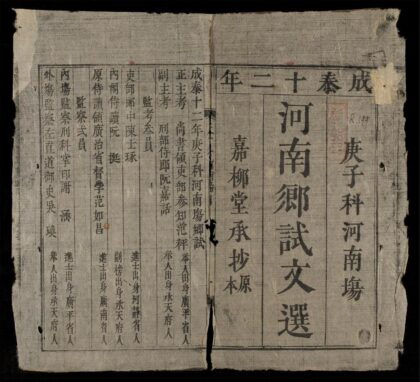 成泰十二年
庚子科河南塲
河南鄉試文選
嘉柳堂承抄原本
成泰十二年庚子科河南塲鄉試
正主考 尚書領吏部參知范 舉人出身廣平省人
副主考 刑部侍郎阮嘉話 舉人出身承天府人
監考叁員
吏部郎中陳士琢 進士出身河靜省人
內閣侍讀阮 挺 副榜出身承天府人
原侍讀領廣治省督學范如昌 進士出身廣南省人
監察貳員
內塲監察刑科掌印謝 進士出身廣平省人
外塲監察左直道御史吳 瑛 舉人出身承天府人